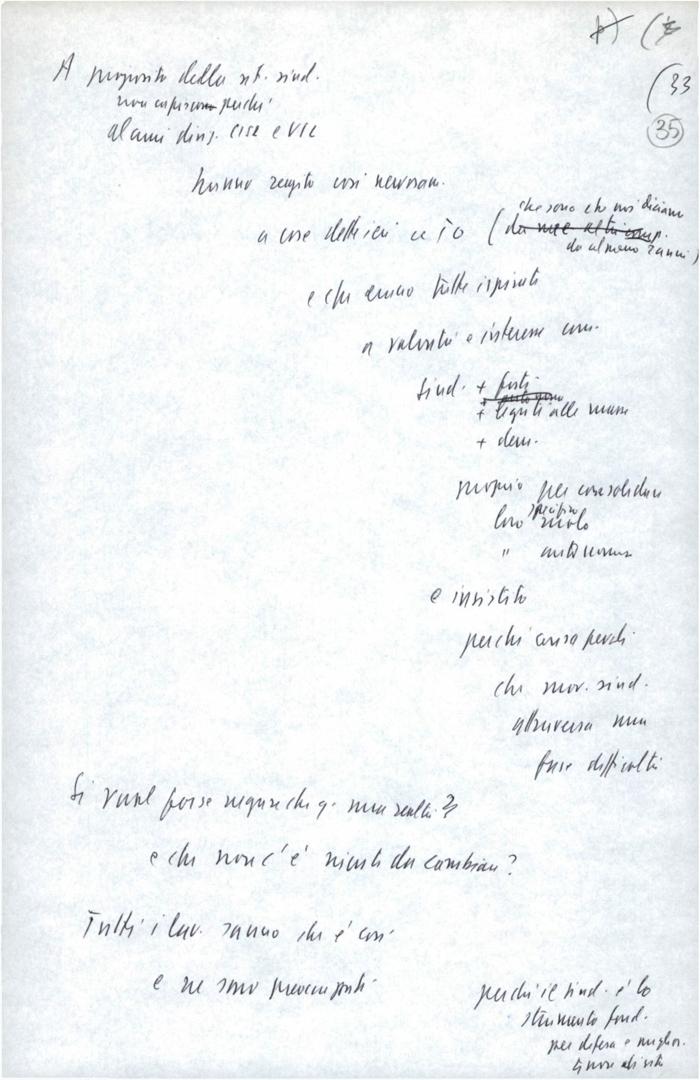 33
35
A proposito della sit. sind.
non capiscono perché
alcuni dirig. CISL e UIL
hanno reagito così nervosam.
a cose dette ieri
(che sono che noi diciamo
da altri comp.
da almeno 2 anni)
e che erano tutte ispirate
a volontà e interesse com.
Sind. + forti
+ legati alle masse
+ dem.
proprio per consolidare
loro specifico ruolo
" autonomia
e insistito
perché consapevoli
che mov. sind.
attraversa una
fase difficoltà
Si vuol forse negare che q. una realtà?
e che non c'è niente da cambiare?
Tutti i lav. sanno che è così
e ne sono preoccupati
perché il sind. è lo
strumento fond.
per difesa e miglior.
di vita